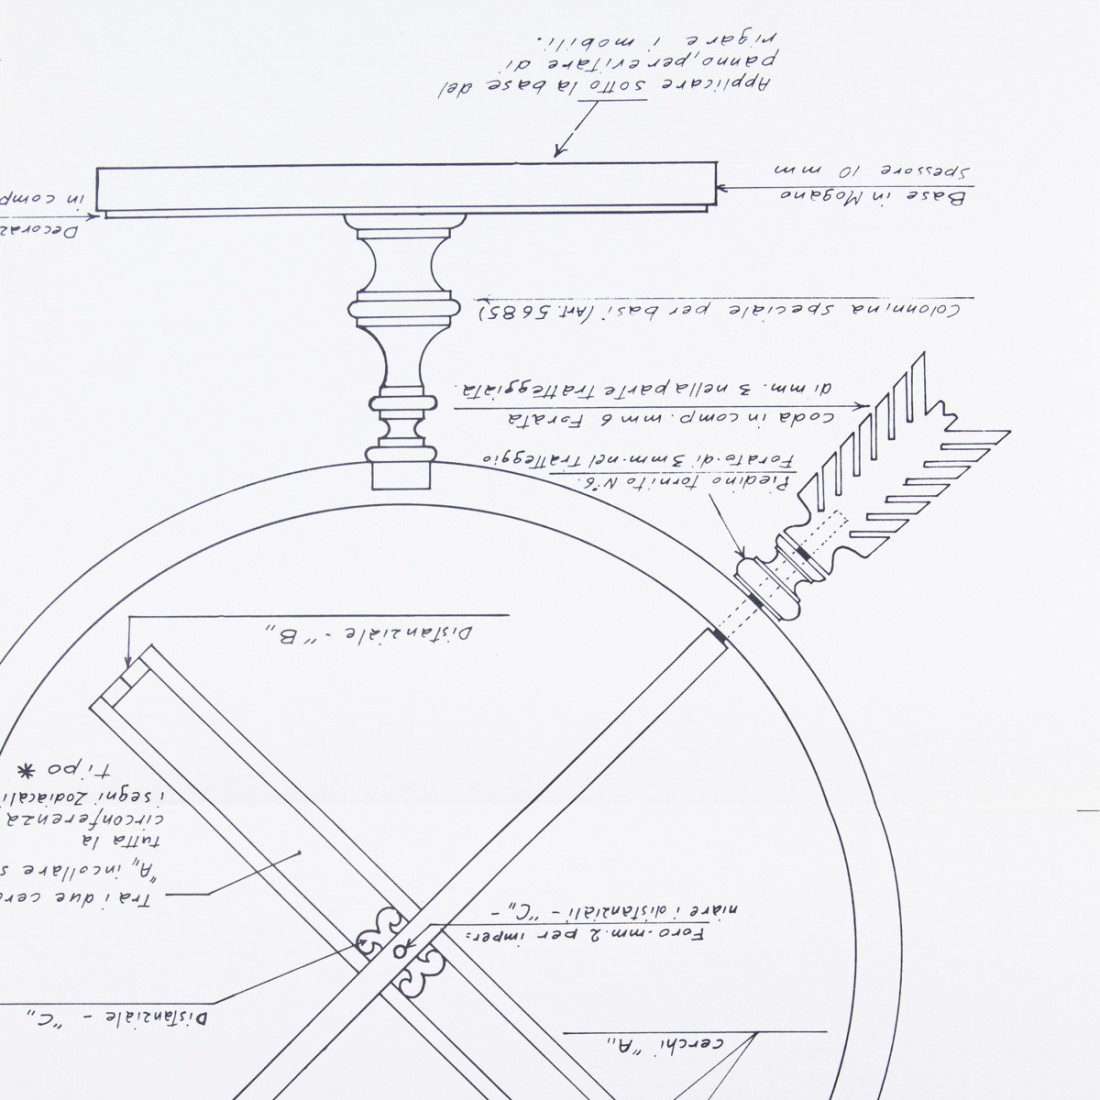 cerchi "A„
Distanziale - "C„
Foro-mm.2 per imper=
niare i distanziali - "C„ -
Tra i due cerc
"A„ incollare s
tutta la
circonferenza
i segni Zodiacali
tipo *
Distanziale - "B„
Piedino tornito N°6.
Forato di 3mm. nel Tratteggio
coda in comp. mm 6 Forata
di mm. 3 nella parte Tratteggiata.
Colonnina speciale per basi (Art. 5685)
Decoraz
in comp
Base in Mogano
spessore 10 mm
Applicare sotto la base del
panno, per evitare di
rigare i mobili.